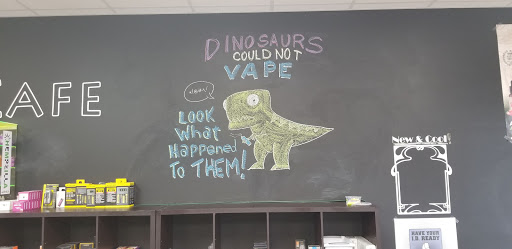 DINOSAURS
COULD NOT
VAPE
CAFE
LOOK
WHAT
HAPPENED
TO THEM!
New & Cool
HAVE YOUR
I.D. READY